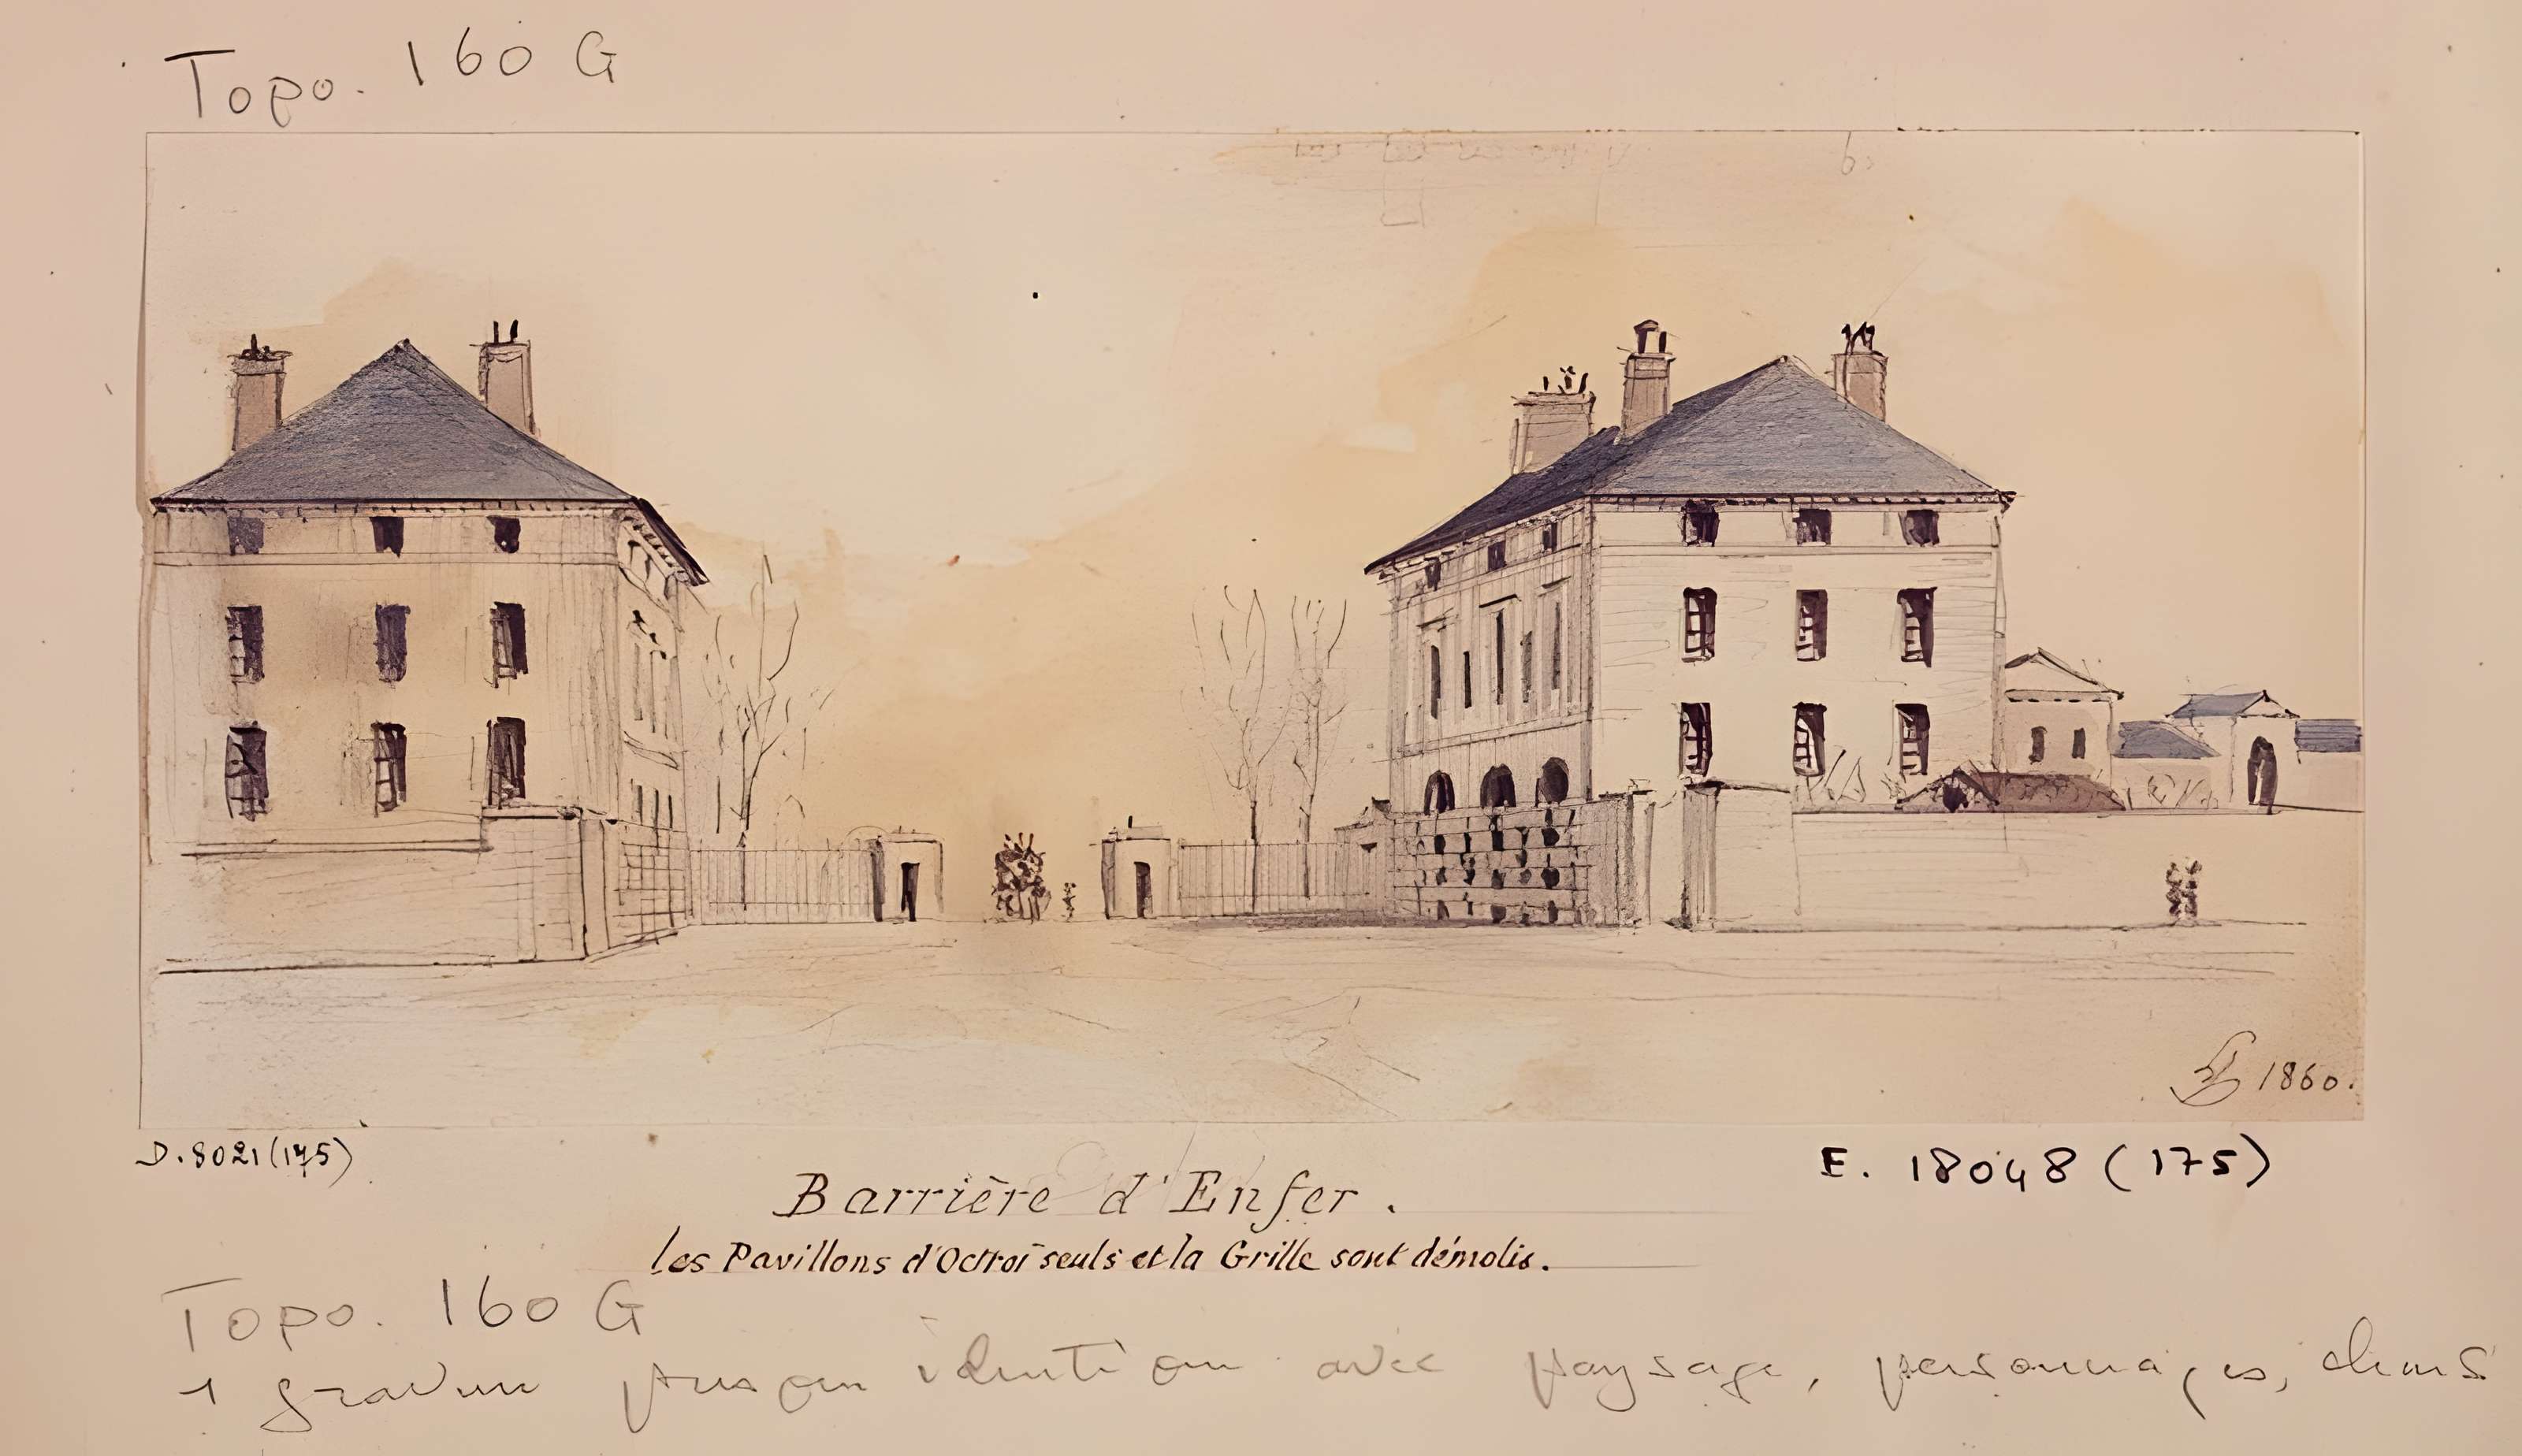 Topo. 160 G
1860.
D. 8021 (175)
E. 18048 (175)
Barrière d'Enfer.
les Pavillons d'Octroi seuls et la Grille sont démolis.
Topo. 160 G
1 gravure presque identique avec paysage, personnages,